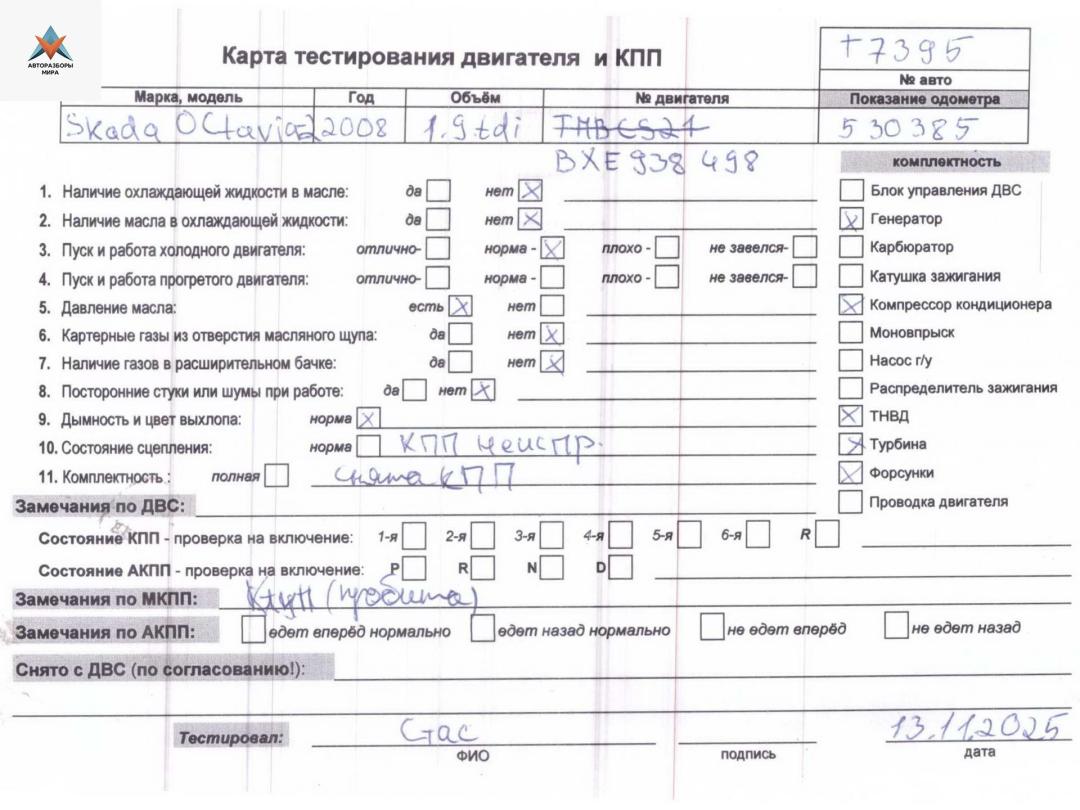 АВТОРАЗБОРЫ
МИРА
Карта тестирования двигателя и КПП
+7395
№ авто
Марка, модель Год Объём № двигателя Показание одометра
Skada OCtavia2 2008 1.9 tdi TMBCS21 530385
BXE 938 498
комплектность
1. Наличие охлаждающей жидкости в масле: да нет
Блок управления ДВС
2. Наличие масла в охлаждающей жидкости: да нет
Генератор
3. Пуск и работа холодного двигателя: отлично- норма - плохо - не завелся-
Карбюратор
4. Пуск и работа прогретого двигателя: отлично- норма - плохо - не завелся-
Катушка зажигания
5. Давление масла: есть нет
Компрессор кондиционера
6. Картерные газы из отверстия масляного щупа: да нет
Моновпрыск
7. Наличие газов в расширительном бачке: да нет
Насос г/у
8. Посторонние стуки или шумы при работе: да нет
Распределитель зажигания
9. Дымность и цвет выхлопа: норма
ТНВД
10. Состояние сцепления: норма КПП неиспр.
Турбина
11. Комплектность : полная снята КПП
Форсунки
Замечания по ДВС:
Проводка двигателя
Состояние КПП - проверка на включение: 1-я 2-я 3-я 4-я 5-я 6-я R
Состояние АКПП - проверка на включение: P R N D
Замечания по МКПП: (пробита)
Замечания по АКПП: едет вперёд нормально едет назад нормально не едет вперёд не едет назад
Снято с ДВС (по согласованию!):
Тестировал: Стас 13.11.2025
ФИО подпись дата